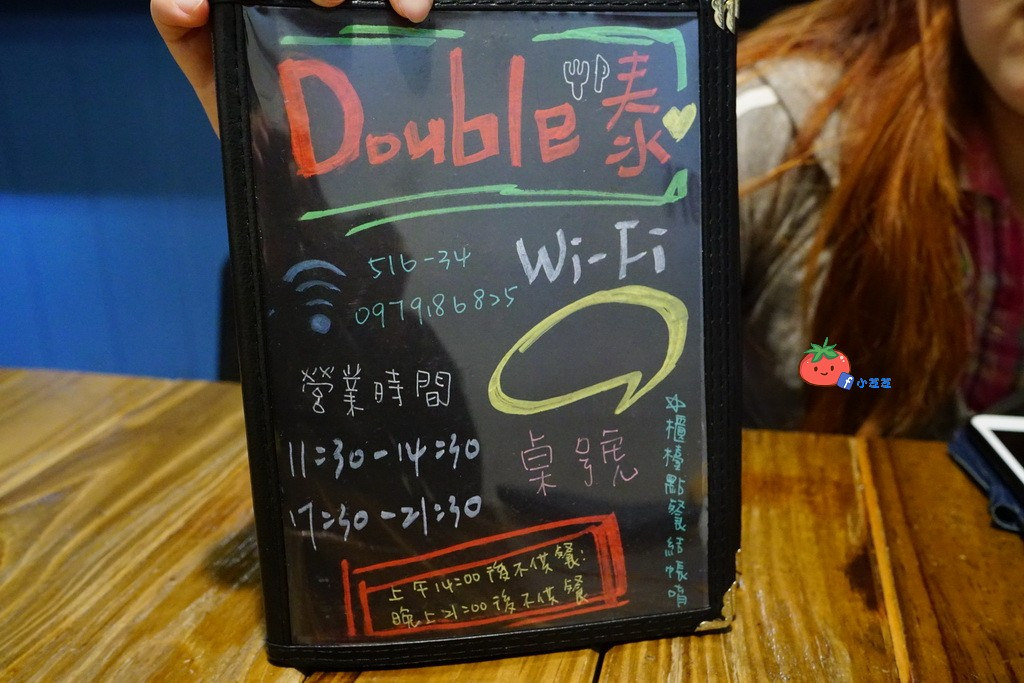 Double 泰
Wi-Fi
516-34
0979186825
營業時間
11:30-14:30
17:30-21:30
桌號
☆櫃檯點餐結帳唷
上午14:00後不供餐;
晚上21:00後不供餐
小芝芝